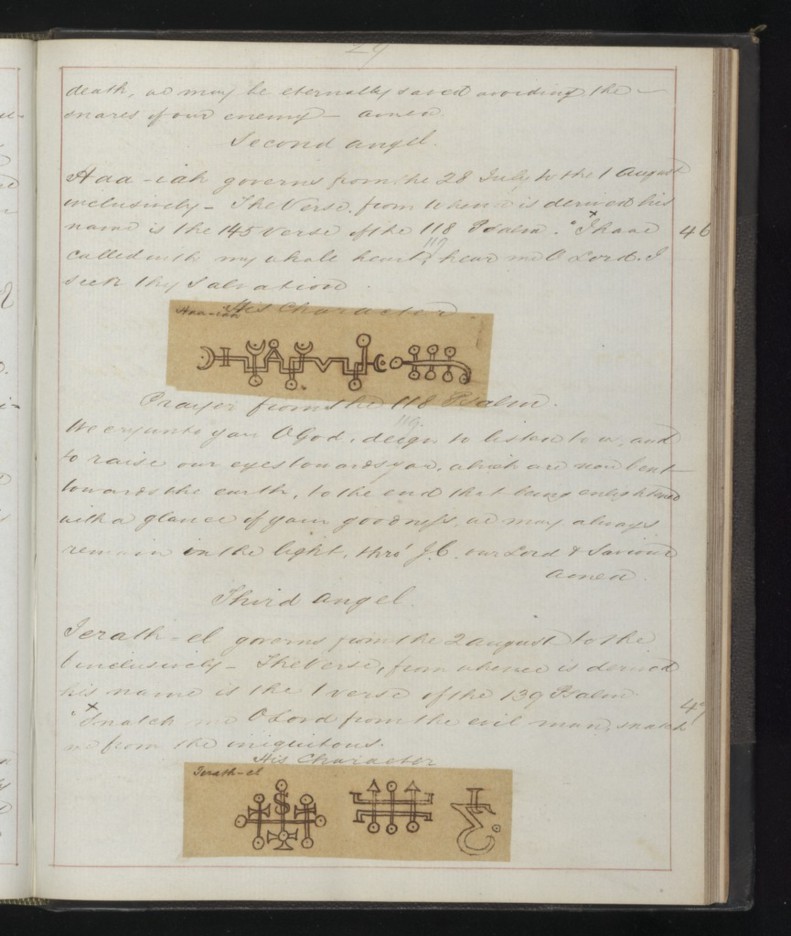 29
death, we may be eternally saved avoiding the
snares of our enemy - amen
Second angel.
Haa-iah governs from the 28 July to the 1 August
inclusively - The Verse, from whence is derived his
name is the 145 verse of the 118 Psalm. "I have 46
119
called with my whole heart, hear me O Lord. I
seek thy Salvation
His Character.
Prayer from the 118 Psalm.
119
We cry unto you O God, deign to listen to us, and
to raise our eyes towards you, which are now bent
towards the earth, to the end that being enlightened
with a glance of your goodness, we may always
remain in the light, thro' J.C. our Lord & Saviour
amen.
Third angel.
Ierath-el governs from the 2 august to the
6 inclusively - The Verse, from whence is derived
his name is the 1 verse of the 139 Psalm
"Snatch me O Lord from the evil man, snatch
me from the iniquitous.
His Character
Ierath-el